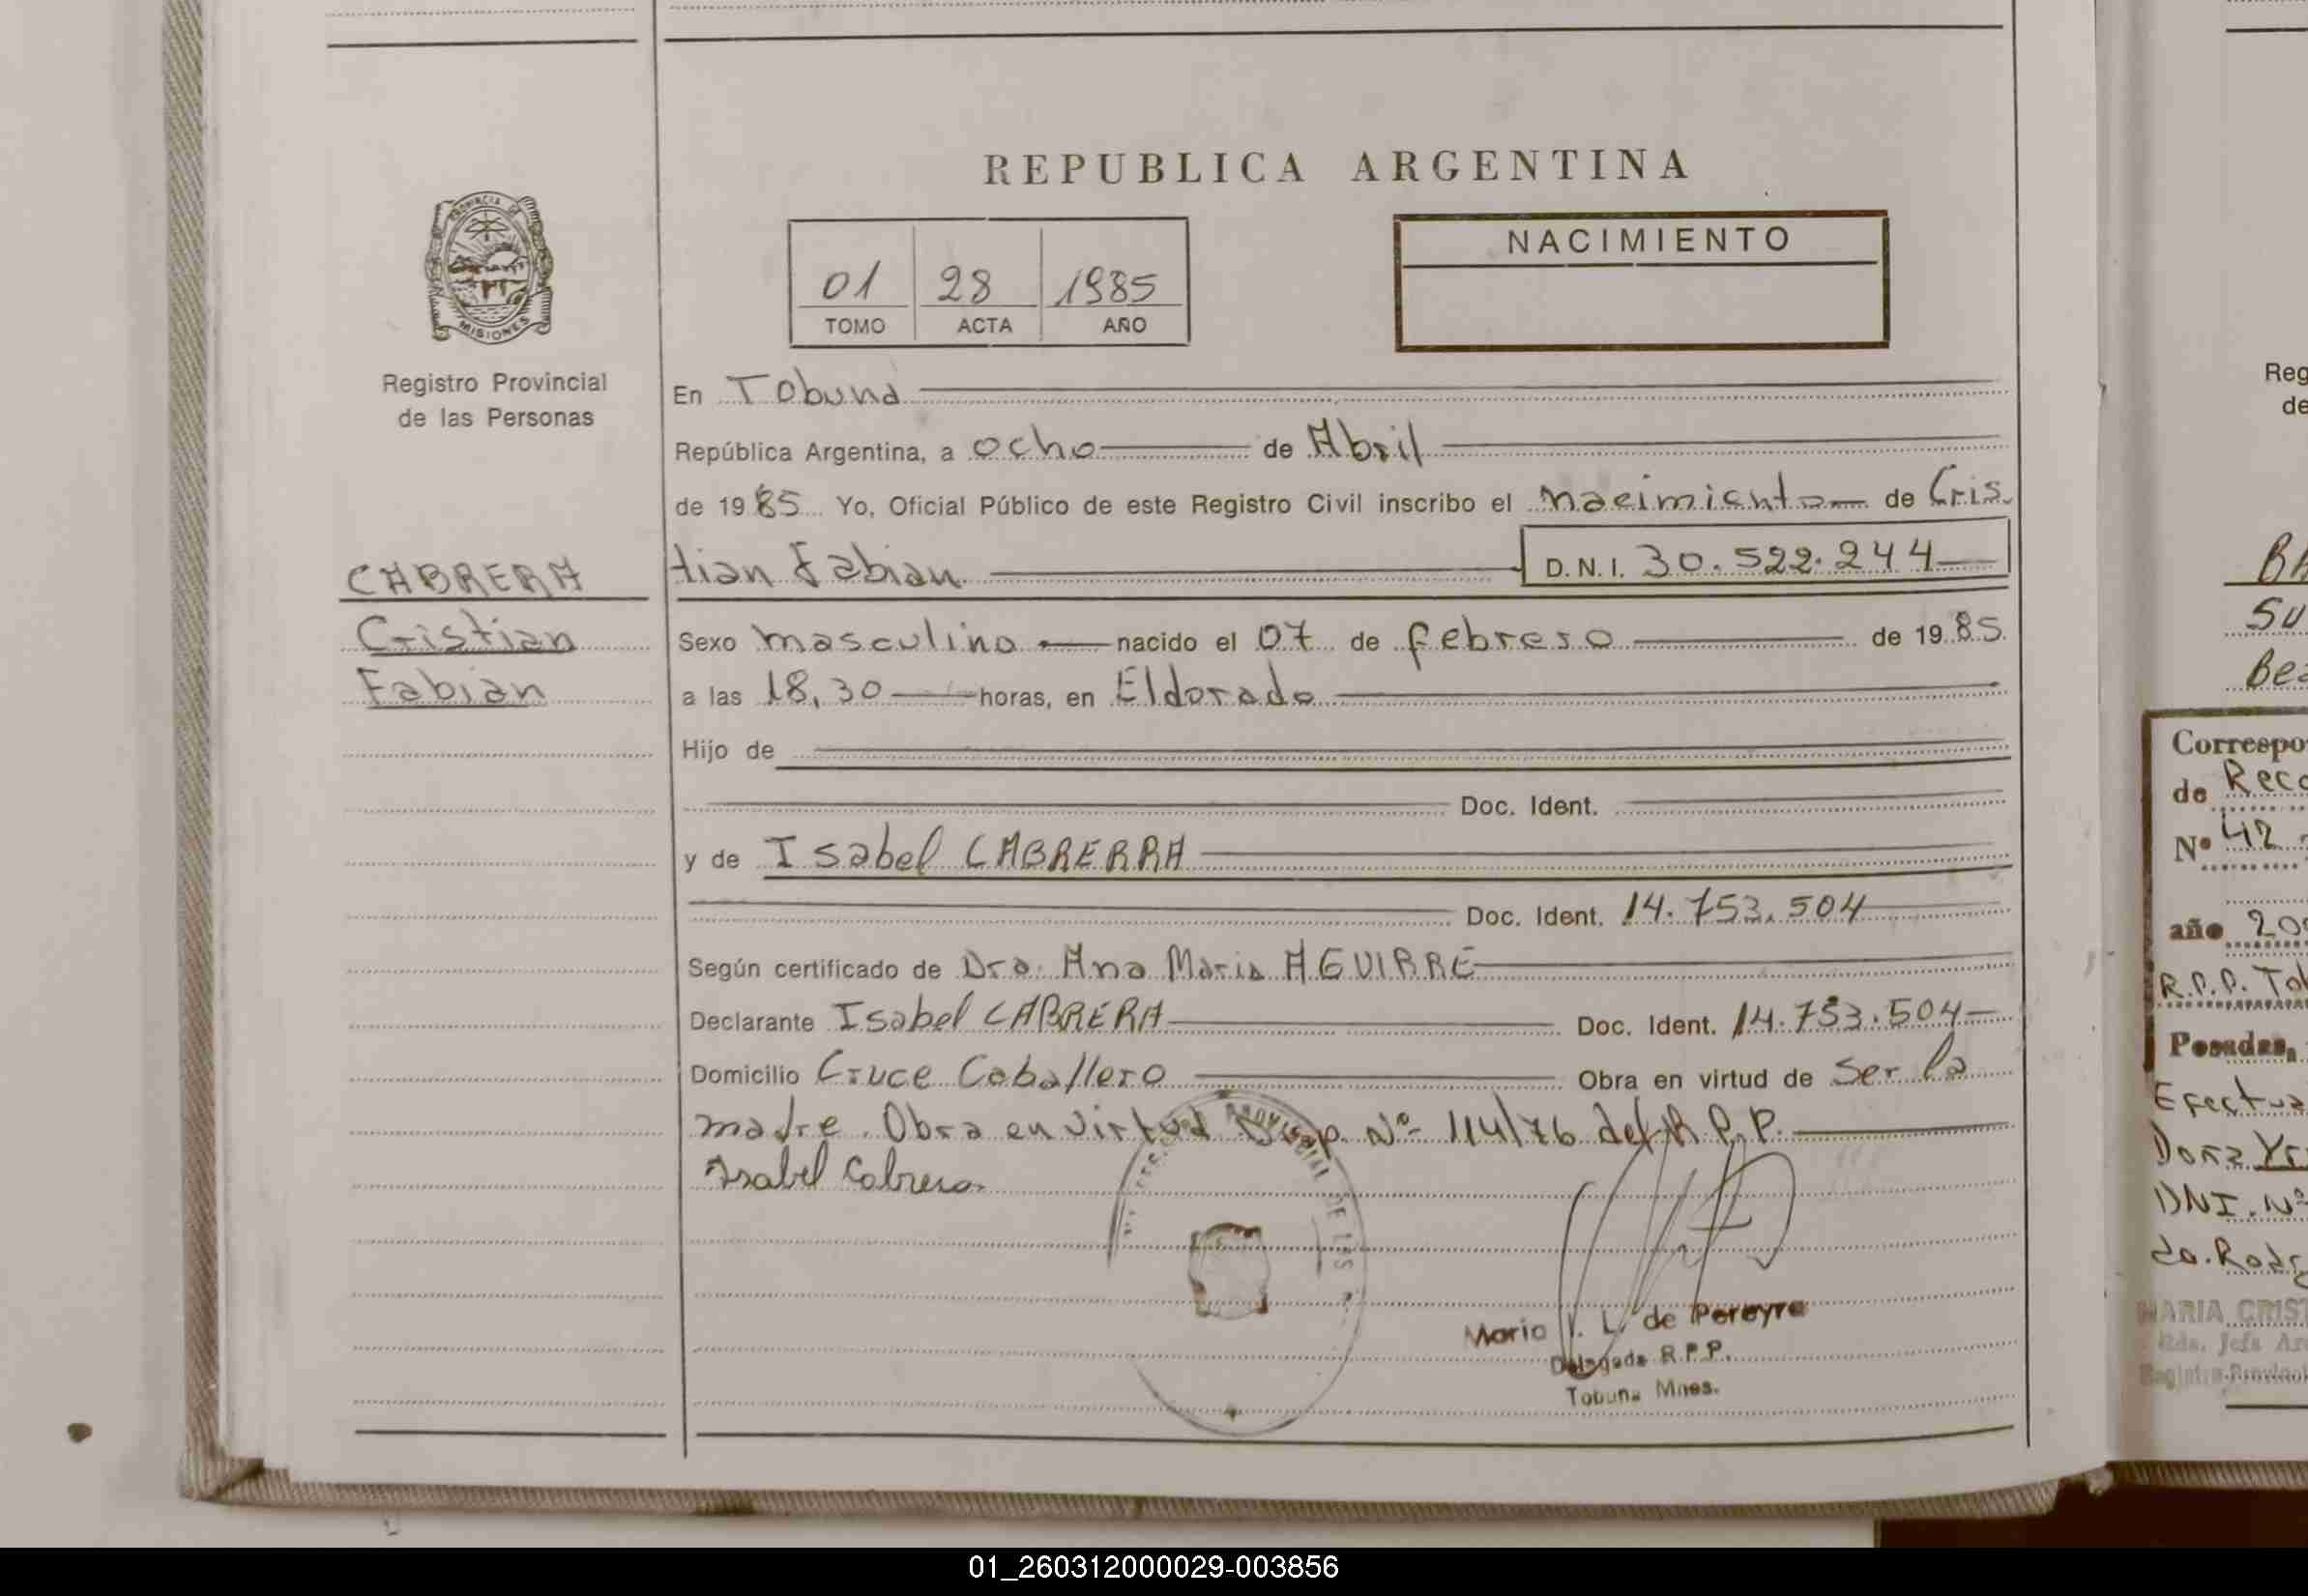 REPUBLICA ARGENTINA
PROVINCIA DE
MISIONES
Registro Provincial
de las Personas
01 28 1985
TOMO ACTA AÑO
NACIMIENTO
En Tobuna
República Argentina, a ocho de Abril
de 1985 Yo, Oficial Público de este Registro Civil inscribo el nacimiento de Cris
tian Fabian D.N.I. 30.522.244
CABRERA
Cristian
Fabian
Sexo masculino nacido el 07 de febrero de 1985
a las 18,30 horas, en Eldorado
Hijo de
Doc. Ident.
y de Isabel CABRERRA
Doc. Ident. 14.753.504
Según certificado de Dra. Ana Maria AGUIRRE
Declarante Isabel CABRERA Doc. Ident. 14.753.504
Domicilio Cruce Caballero Obra en virtud de ser la
madre. Obra en virtud Disp. Nº 114/76 del R.P.P.
Isabel Cabrera
PROVINCIAL DE LAS
Maria I. L. de Pereyra
Delegada R.P.P.
Tobuna Mnes.
Reg
de
BA
Su
Bea
Correspo
de Reco
Nº 42
año 20
R.P.P. Tob
Posadas,
Efectua
Doña Yr
DNI. Nº
do. Rodr
MARIA CRIST
Jefa
01_260312000029-003856